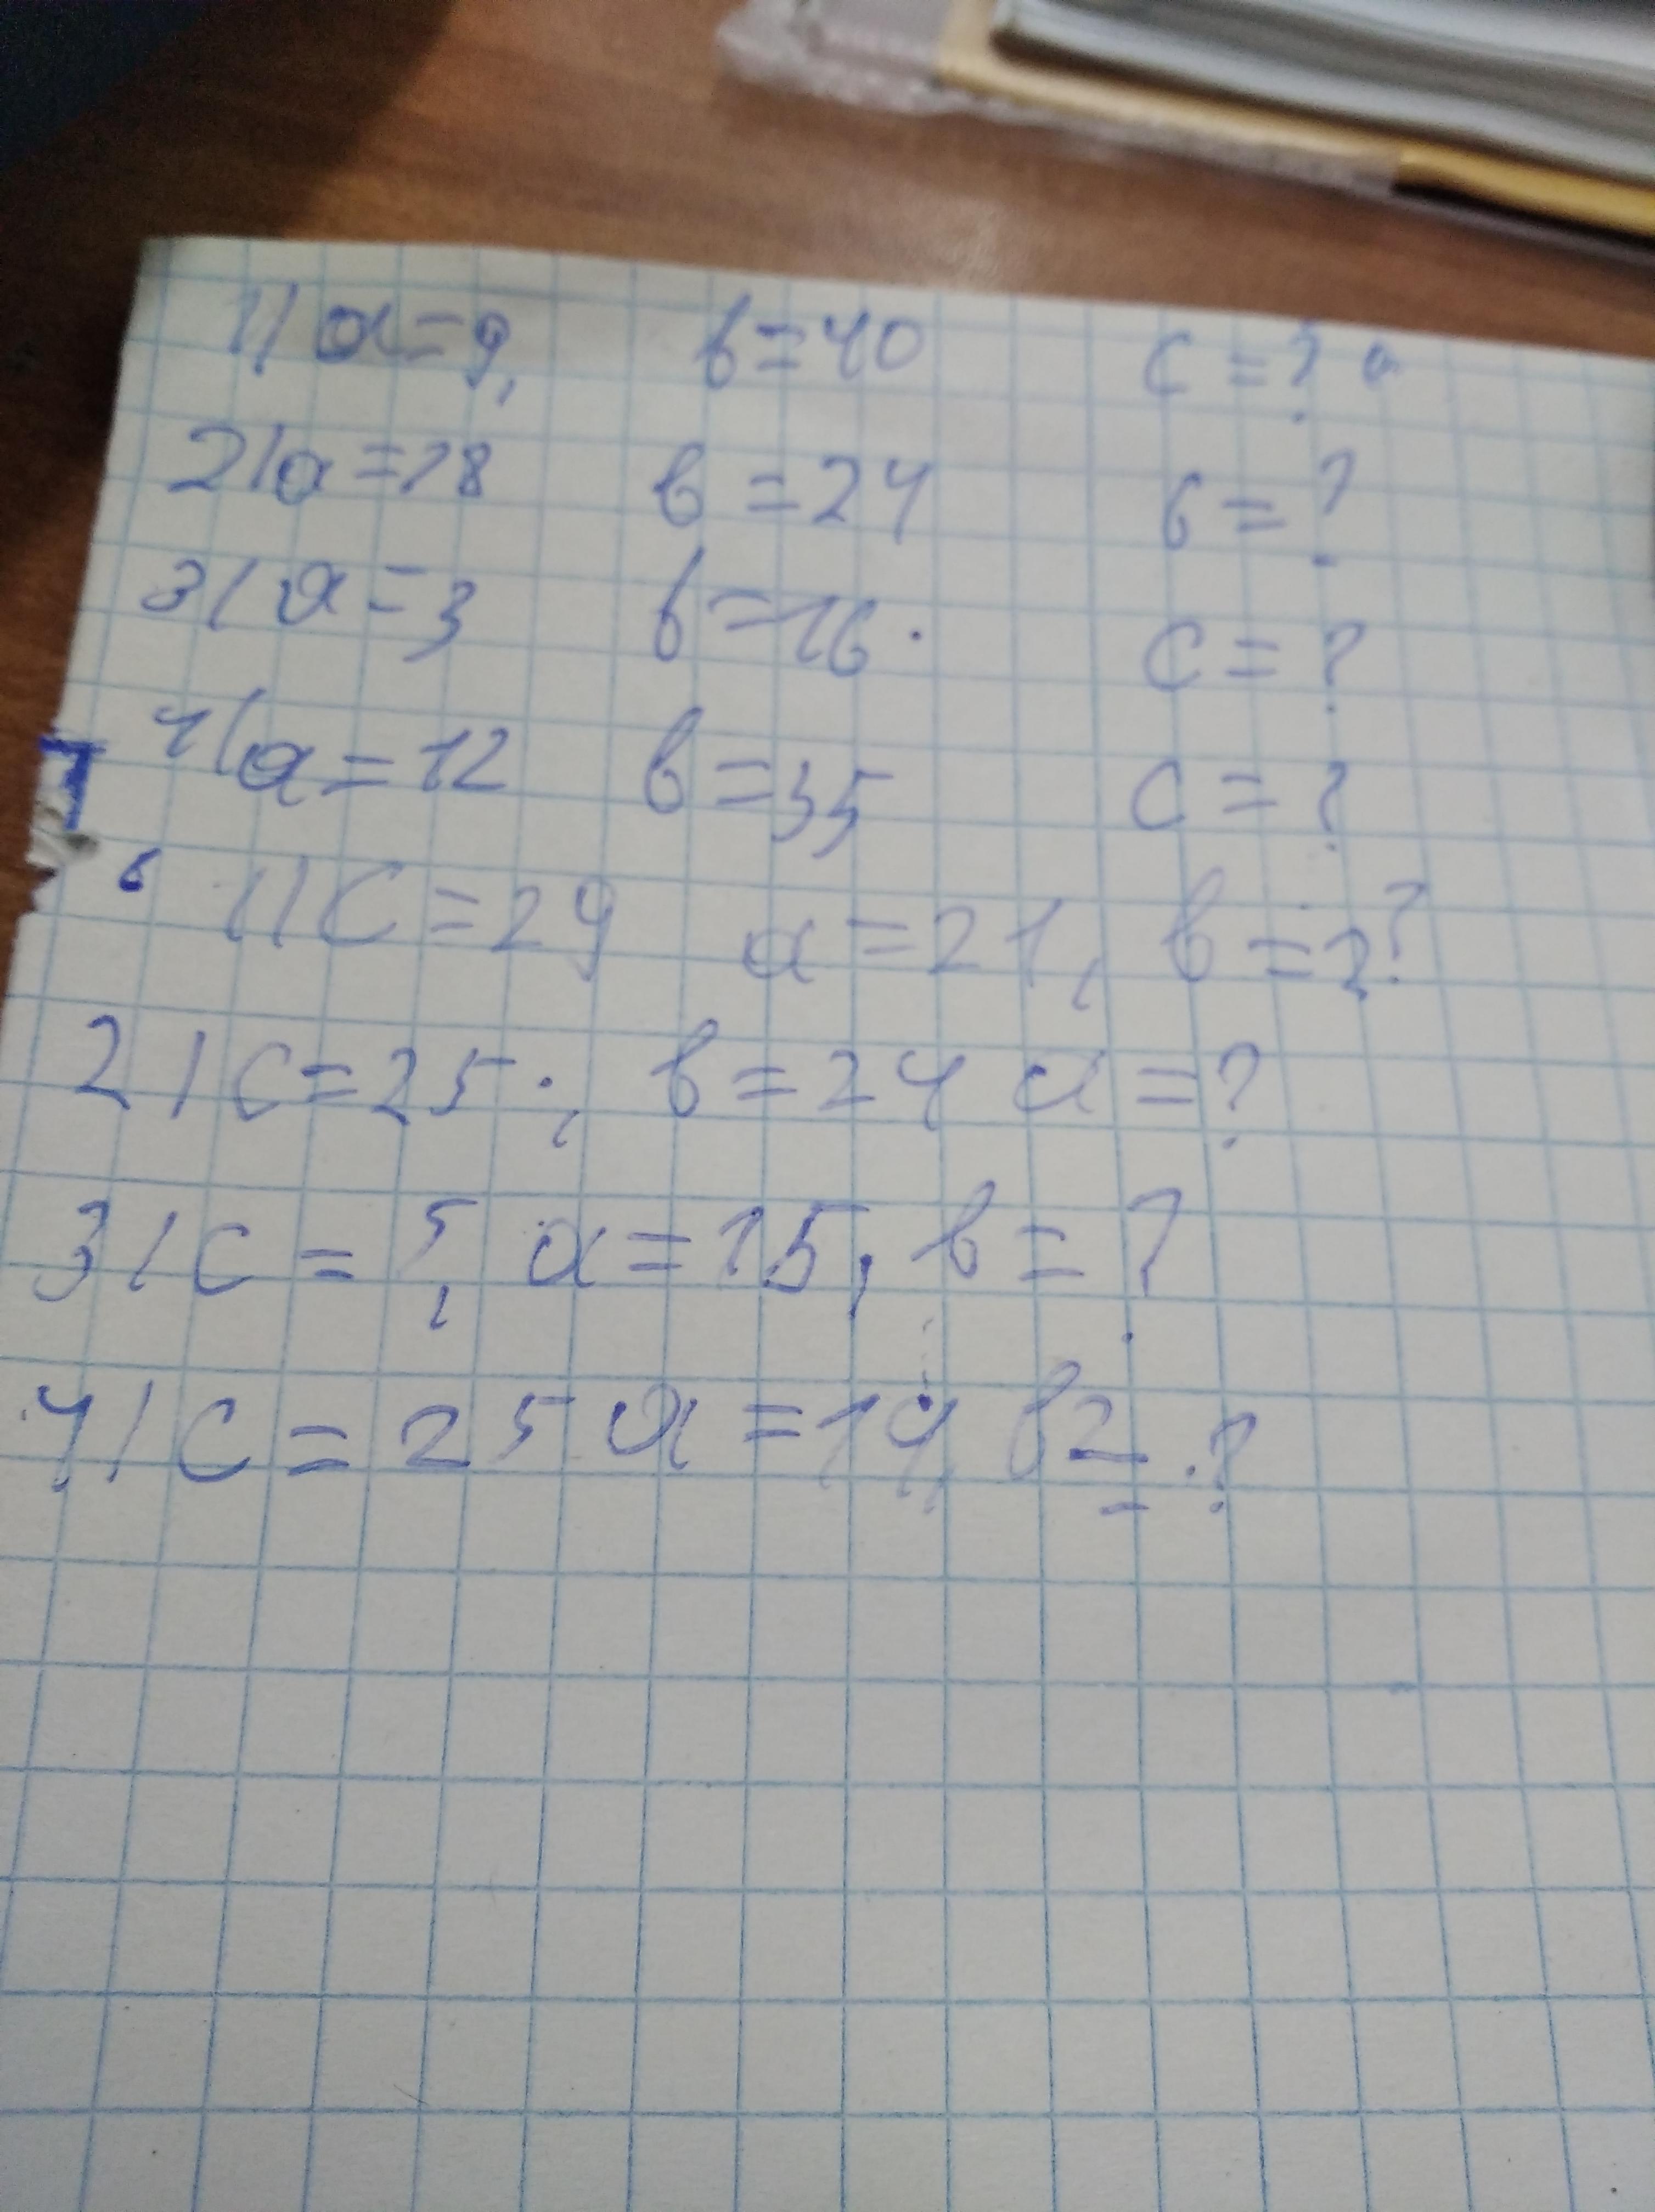 1) a=9, b=40 c=?
2) a=18 b=24 c=?
3) a=3 b=16. c=?
4) a=12 b=35 c=?
1) c=29 a=21, b=?
2) c=25, b=24 a=?
3) c=5, a=15, b=?
4) c=25 a=14, b=?